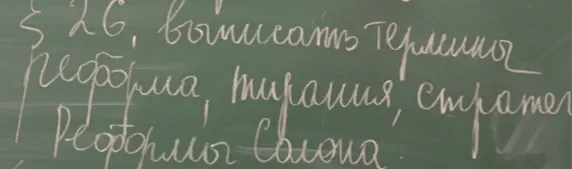 § 26, выписать термины
реформа, тирания, стратег
Реформы Солона